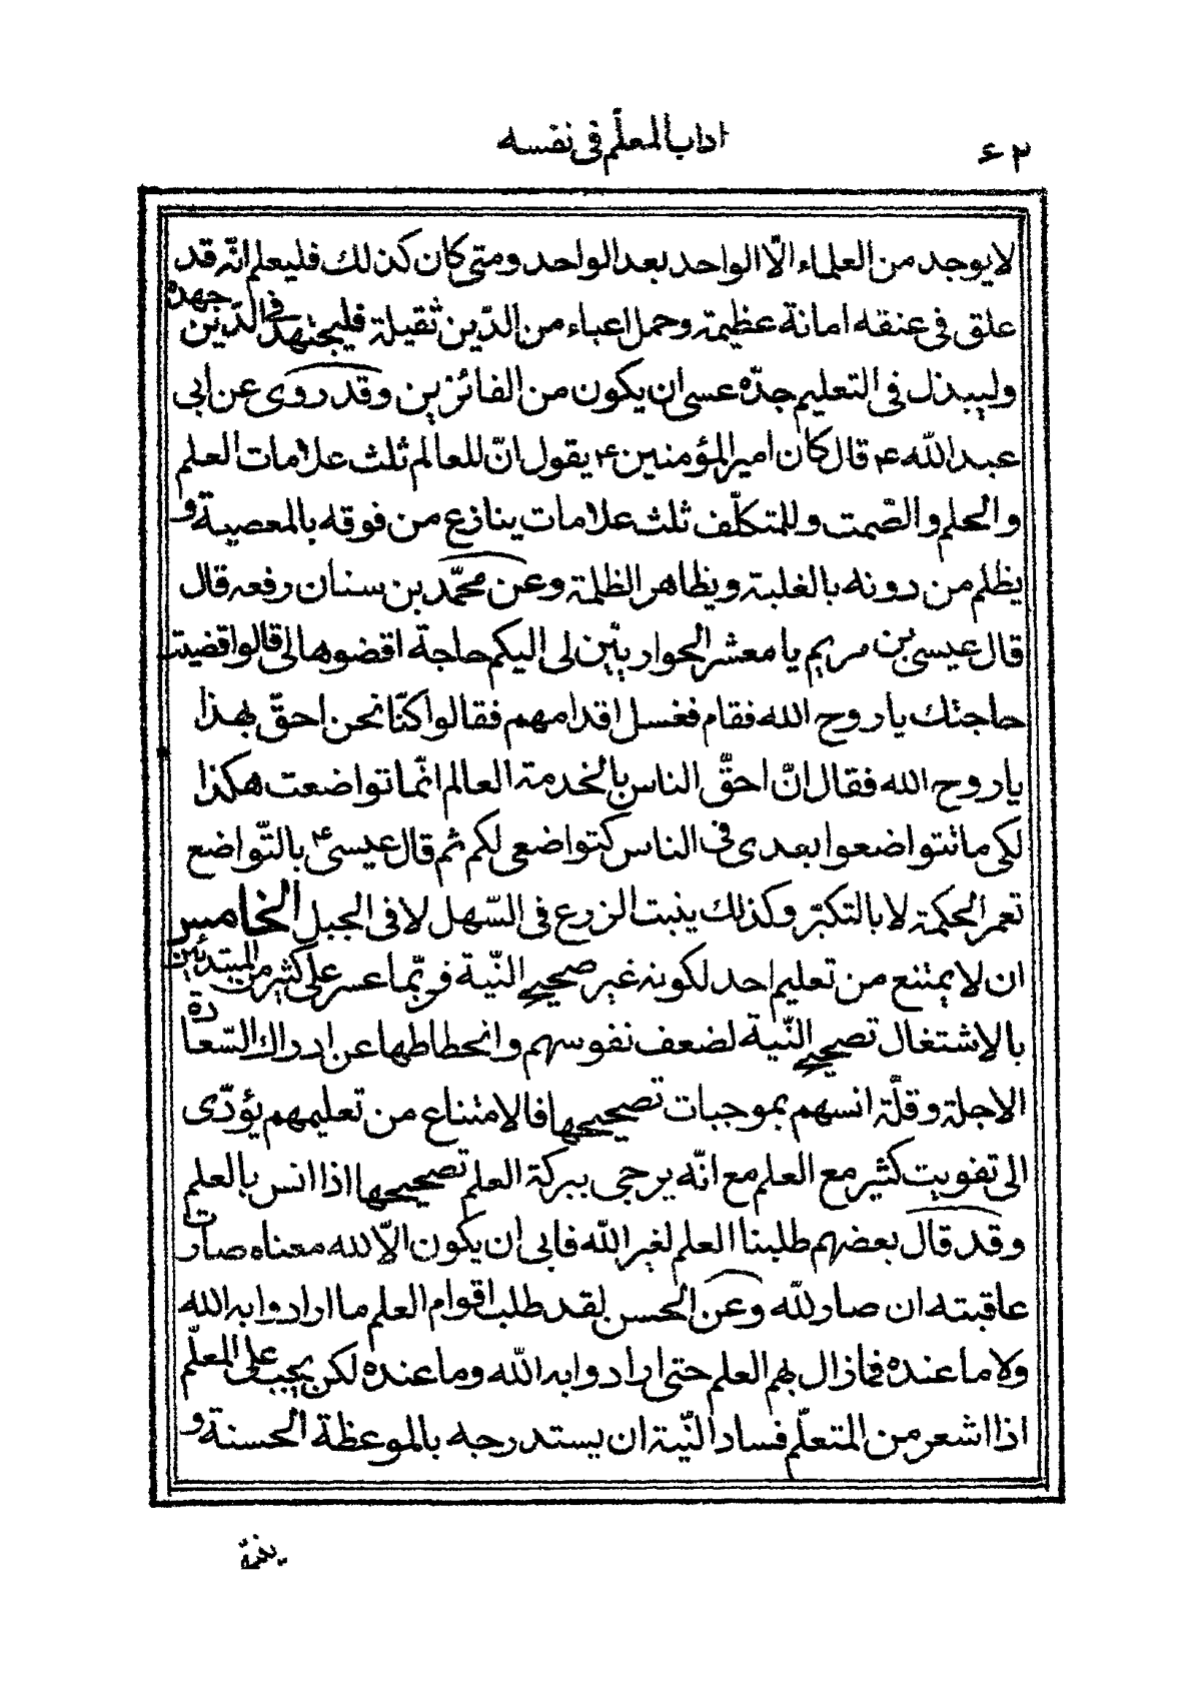 ٦٢
اداب المعلّم فى نفسه
لا يوجد من العلماء الّا الواحد بعد الواحد ومتى كان كذلك فليعلم انّه قد
علق فى عنقه امانة عظيمة وحمل اعباء من الدّين ثقيلة فليجتهد فى الدّين جهده
وليبذل فى التعليم جدّه عسى ان يكون من الفائزين وقد روى عن ابى
عبد الله ع قال كان امير المؤمنين ع يقول انّ للعالم ثلث علامات العلم
والحلم والصّمت وللمتكلّف ثلث علامات ينازع من فوقه بالمعصية و
يظلم من دونه بالغلبة ويظاهر الظلمة وعن محمّد بن سنان رفعه قال
قال عيسى بن مريم يا معشر الحواريّين لى اليكم حاجة اقضوها لى قالوا قضيت
حاجتك يا روح الله فقام فغسل اقدامهم فقالوا كنّا نحن احقّ بهذا
يا روح الله فقال انّ احقّ الناس بالخدمة العالم انّما تواضعت هكذا
لكى ما تتواضعوا بعدى فى الناس كتواضعى لكم ثم قال عيسى ع بالتّواضع
تعمر الحكمة لا بالتكبّر وكذلك ينبت الزرع فى السّهل لا فى الجبل الخامس
ان لا يمتنع من تعليم احد لكونه غير صحيح النّية فربّما عسر على كثير من المبتدئين
بالاشتغال تصحيح النّية لضعف نفوسهم وانحطاطها عن ادراك السّعادة
الاجلة وقلّة انسهم بموجبات تصحيحها فالامتناع من تعليمهم يؤدّى
الى تفويت كثير مع العلم مع انّه يرجى ببركة العلم تصحيحها اذا انس بالعلم
وقد قال بعضهم طلبنا العلم لغير الله فابى ان يكون الّا لله معناه صارت
عاقبته ان صار لله وعن الحسن لقد طلب اقوام العلم ما ارادوا به الله
ولا ما عنده فما زال بهم العلم حتى ارادوا به الله وما عنده لكن يجب على المعلّم
اذا اشعر من المتعلّم فساد النّية ان يستدرجه بالموعظة الحسنة و